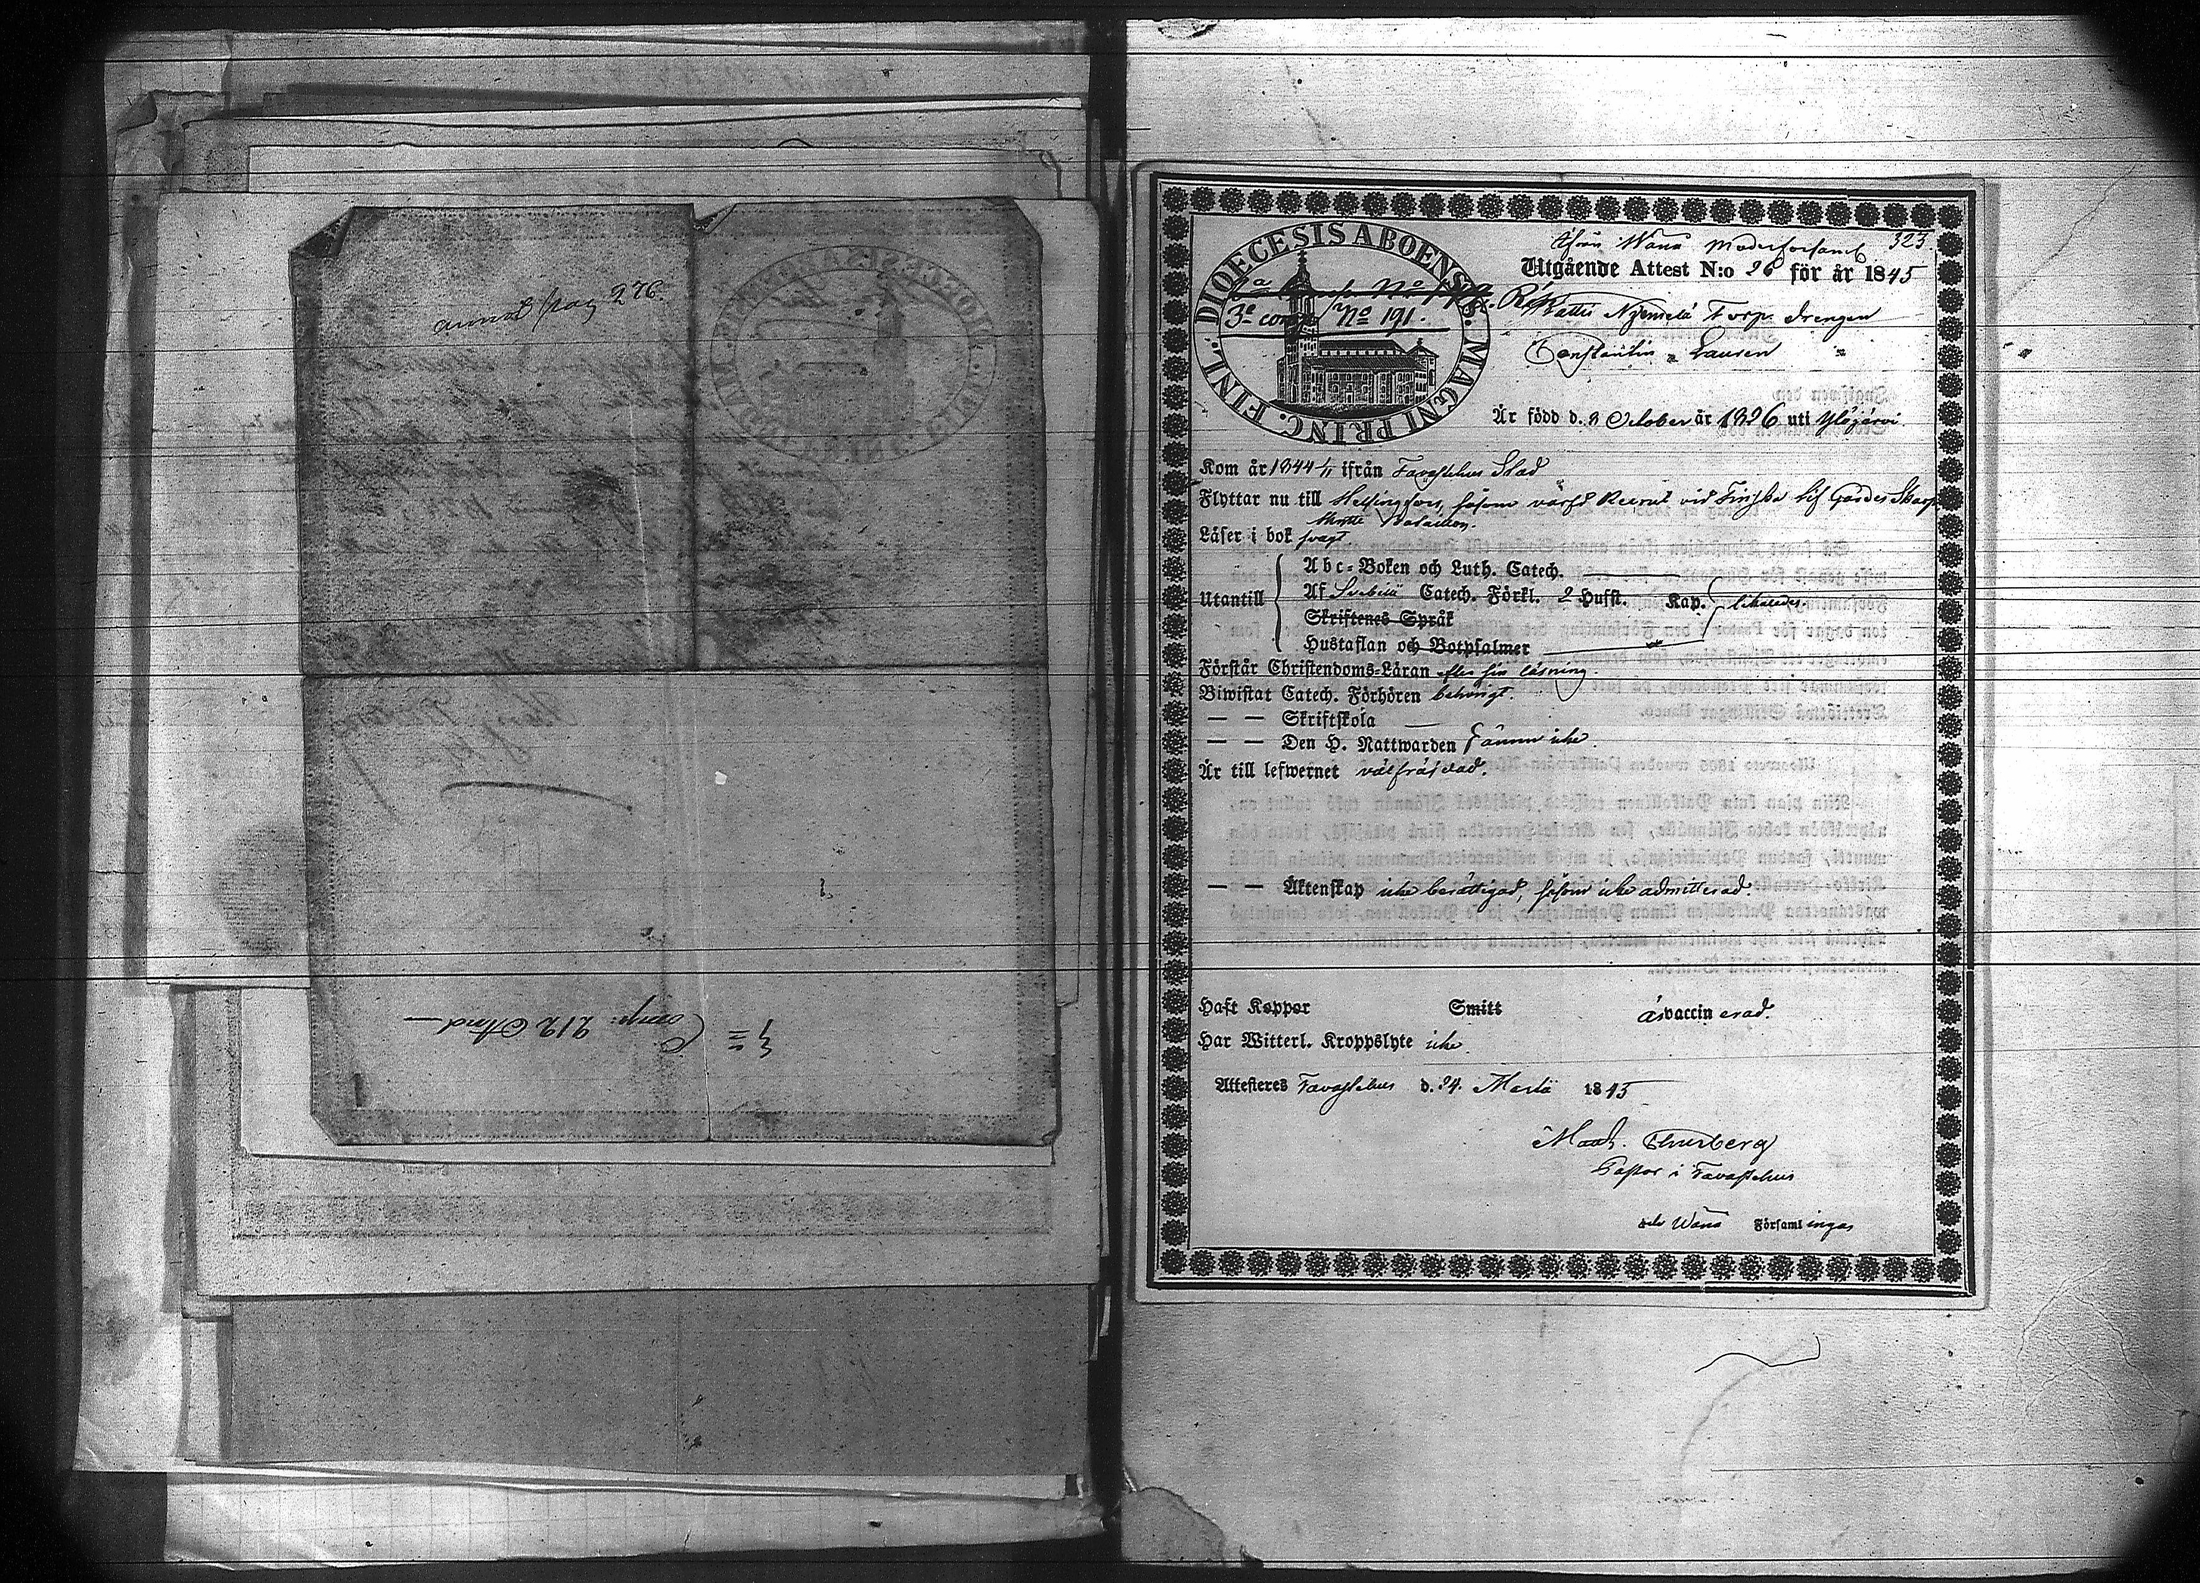 annot pag 276.
Comp: 212 And
323.
ifrån Wånå Moderförsaml
Utgående Attest N:o 26 för år 1845
DIOECESIS ABOENS. MAGNI PRINC. FINL.
3e comp. No 191.
Torp. drengen
Constantin Laurén
Är född d. 8 October år 1826 uti Ylöjärvi
Kom år 1844 ifrån Tavastehus Stad
Flyttar nu till Helsingfors, såsom värfd Recrut vid Finska Lif Gardes Skarp
skytte Bataillon.
Läser i bok svagt
Utantill
Abc-Boken och Luth. Catech.
Af Svebilii Catech. Förkl. 2 Hufst. Kap. likaledes.
Skriftenes Språk
Hustaflan och Botpsalmer
Förstår Christendoms-Läran efter sin läsning.
Biwistat Catech. Förhören behörigt.
— — Skriftskola —
— — Den H. Nattwarden ännu icke.
Är till lefwernet välfräjdad.
— — Äktenskap icke berättigad, såsom icke admitterad.
Haft Koppor Smitt är vaccinerad.
Har Witterl. Kroppslyte icke
Attesteres Tavastehus d. 24. Martii 1845
Thurberg
Pastor i Tavastehus
och Wånå Församlingar